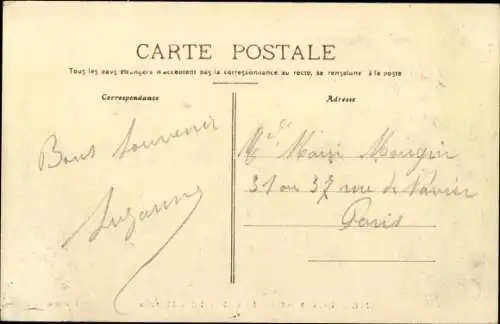 CARTE POSTALE
Tous les pays étrangers n'acceptent pas la correspondance au recto, se renseigner à la poste
Correspondance
Adresse
Bons Souvenir
Suzanne
Melle Mongin
31 ou 37 rue de
Paris